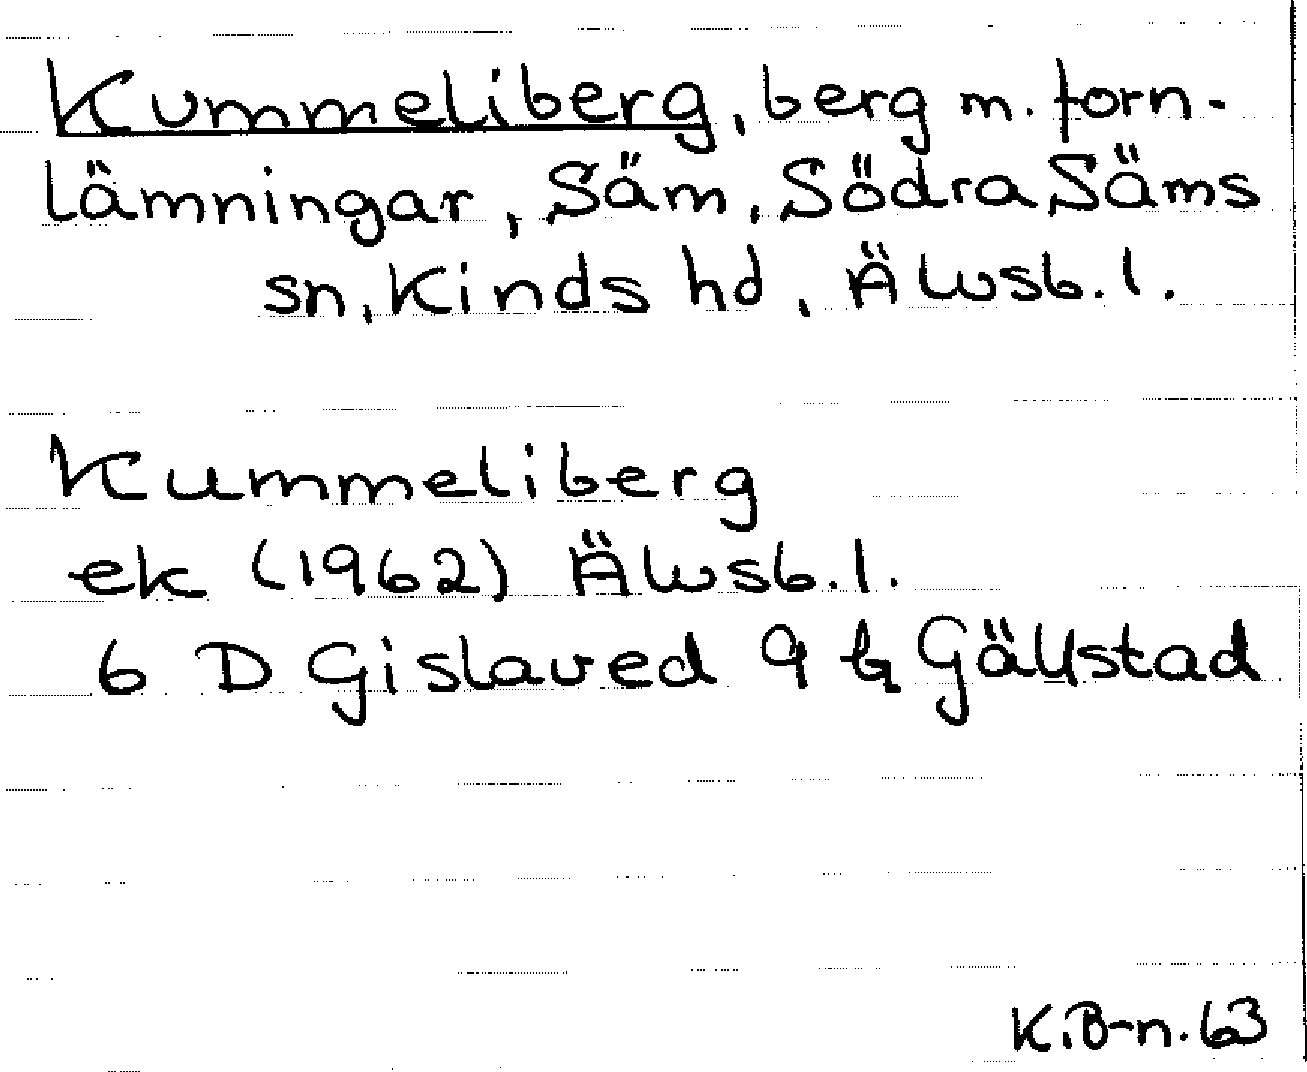 Kummeliberg, berg m. forn-
lämningar, Säm, Södra Säms
sn, Kinds hd, Älvsb. l.
Kummeliberg
ek (1962) Älvsb. l.
6 D Gislaved 9 b Gällstad
K.B-n. 63